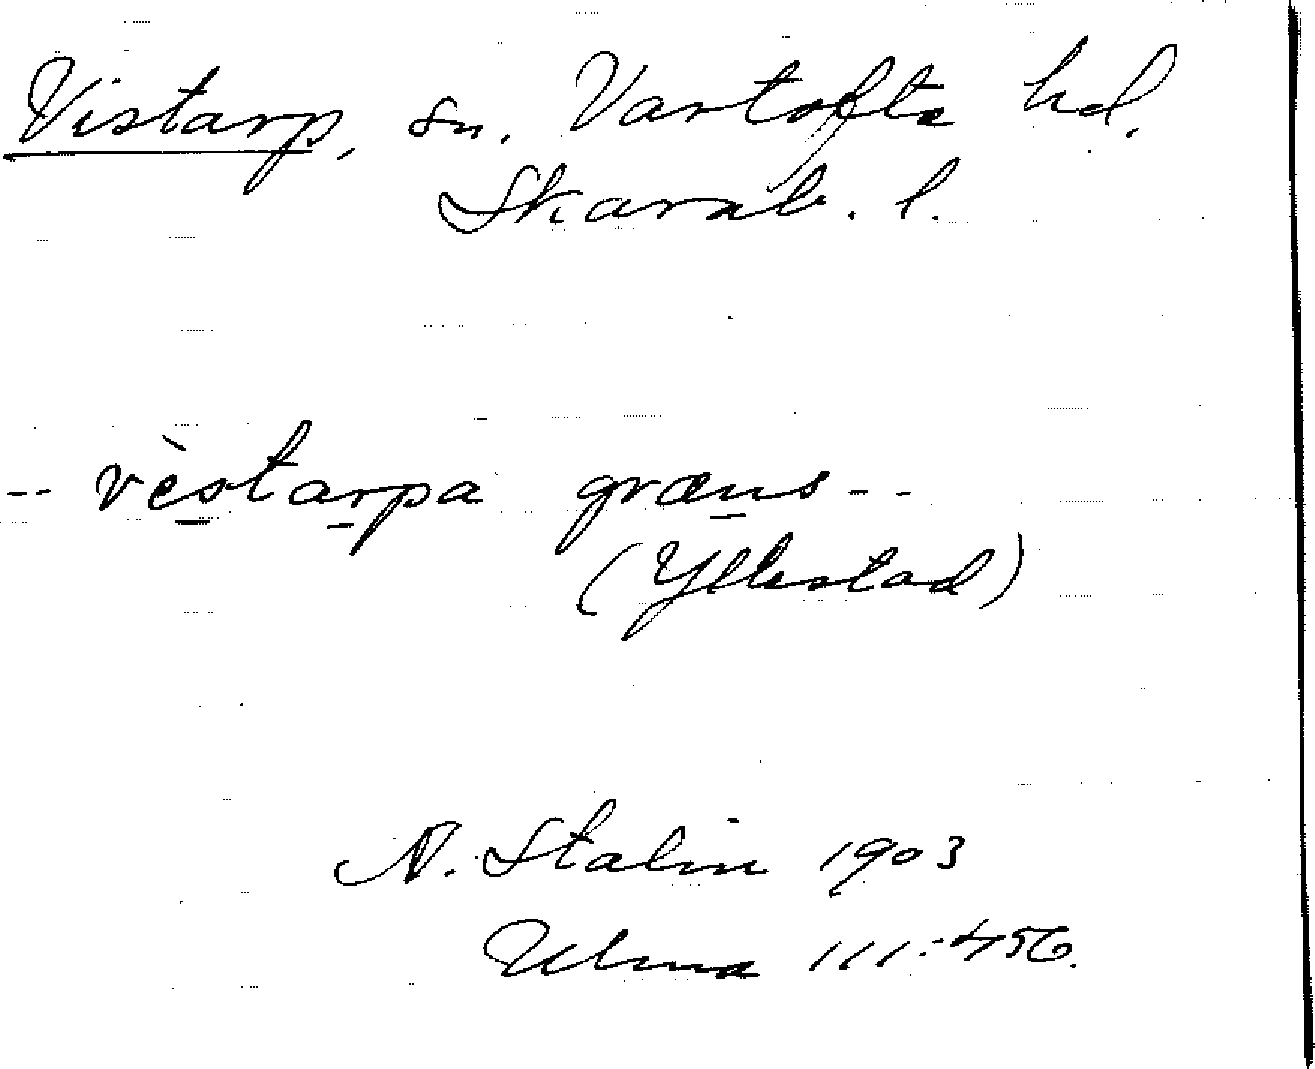 Vistarp, sn. Vartofta hd.
Skarab. l.
-- vèstarpa græns --
(Yllestad)
N. Stalin 1903
Ulma 111:456.